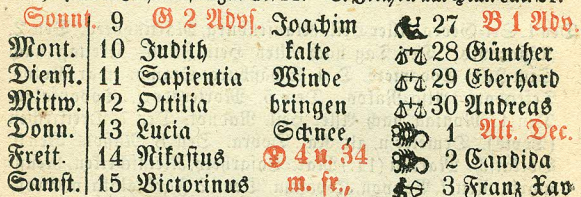 Sonnt. 9 G 2 Advſ. Joachim 27 B 1 Adv.
Mont. 10 Judith kalte ♎ 28 Günther
Dienſt. 11 Sapientia Winde ♎ 29 Eberhard
Mittw. 12 Ottilia bringen ♎ 30 Andreas
Donn. 13 Lucia Schnee, 1 Alt. Dec.
Freit. 14 Nikaſius 4 u. 34 2 Candida
Samſt. 15 Victorinus m. fr., 3 Franz Xav